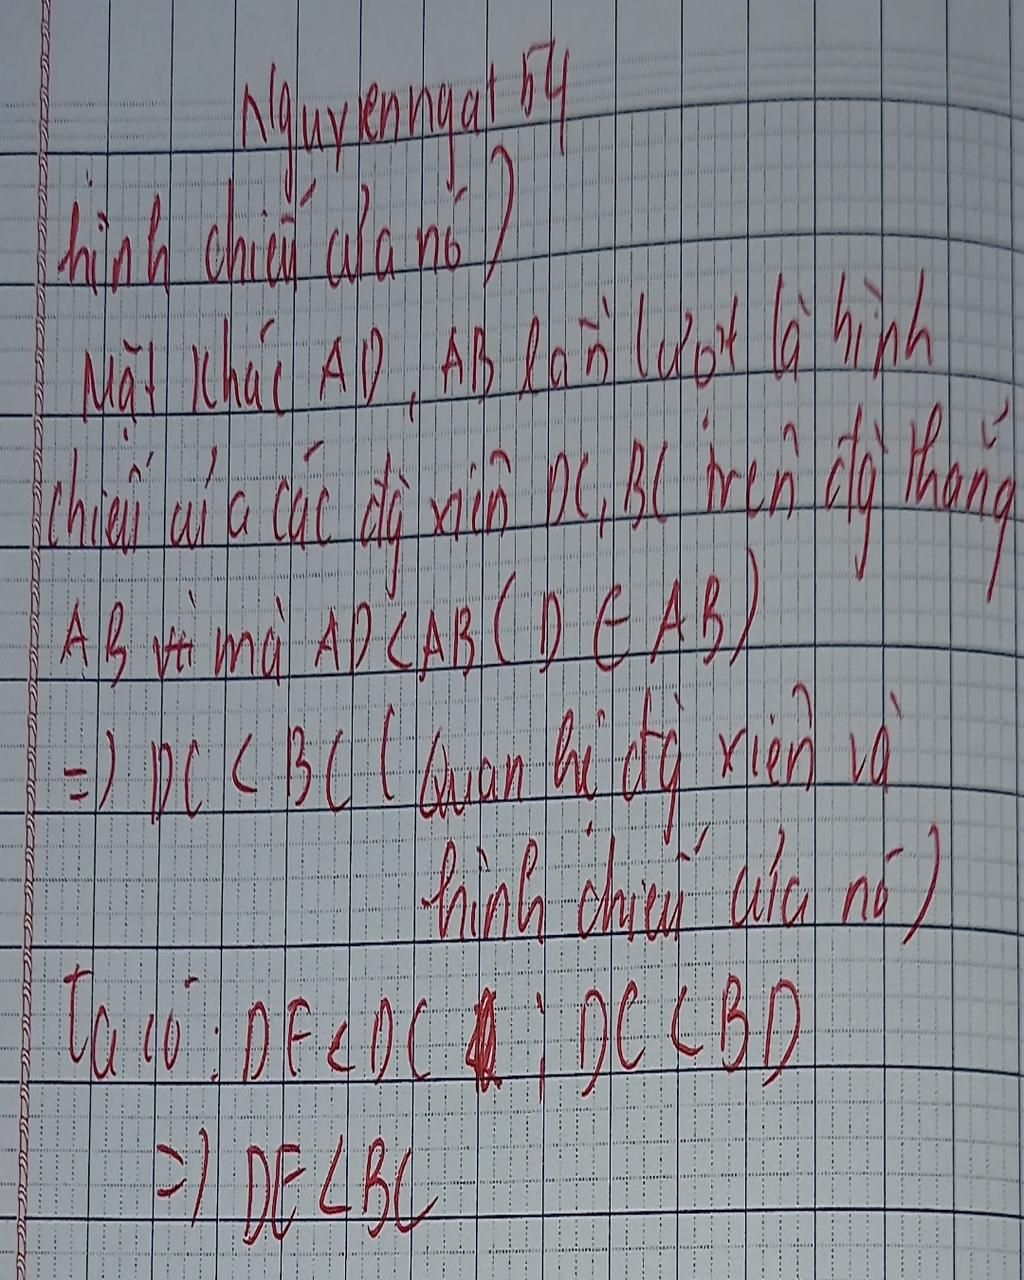 Nguyenngat 54
hình chiếu của nó)
Mặt khác AD, AB lần lượt là hình
chiếu của các đg xiên DC, BC trên đg thẳng
AB mà AD < AB (D ∈ AB)
=) DC < BC (Quan hệ đg xiên và
hình chiếu của nó)
Ta có: DE < DC ; DC < BD
=) DE < BC